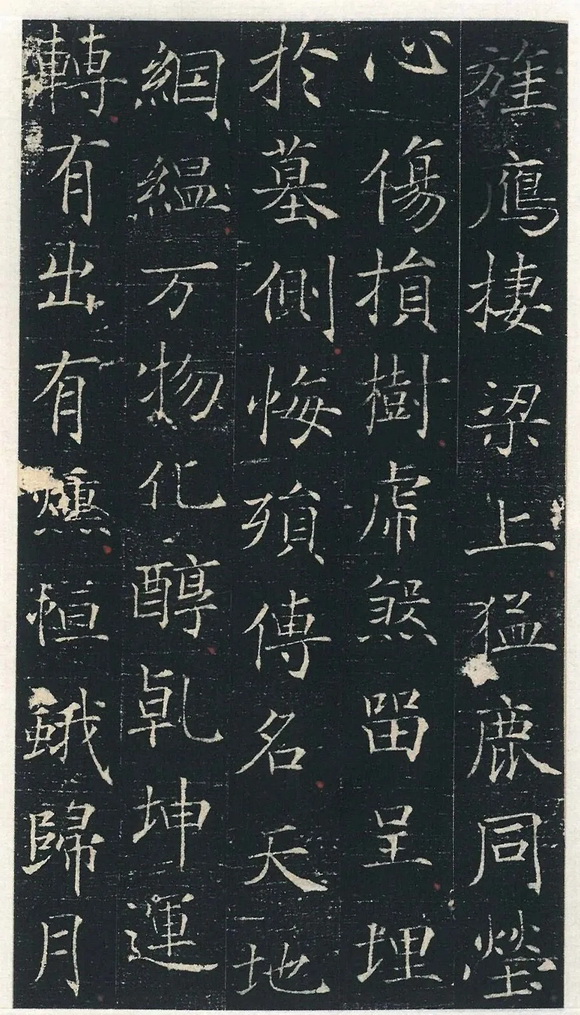 旌鷹棲梁上猛鹿同塋
心傷損樹虎煞畱呈埋
於墓側悔殞傳名天地
絪緼万物化醇乹坤運
轉有出有燻恒蛾歸月